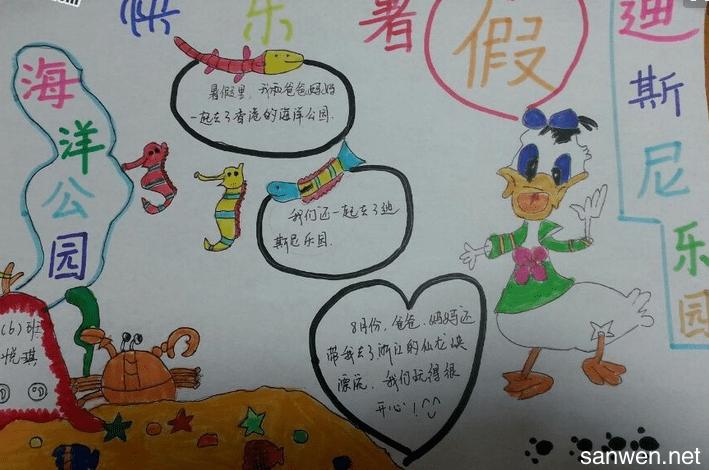 快乐暑假
海洋公园
暑假里,我和爸爸妈妈
一起去了香港的海洋公园.
我们还一起去了迪
斯尼乐园.
8月份,爸爸、妈妈还
带我去了浙江的仙龙峡
漂流,我们玩得很
开心!
迪斯尼乐园
(6)班
悦琪
sanwen.net